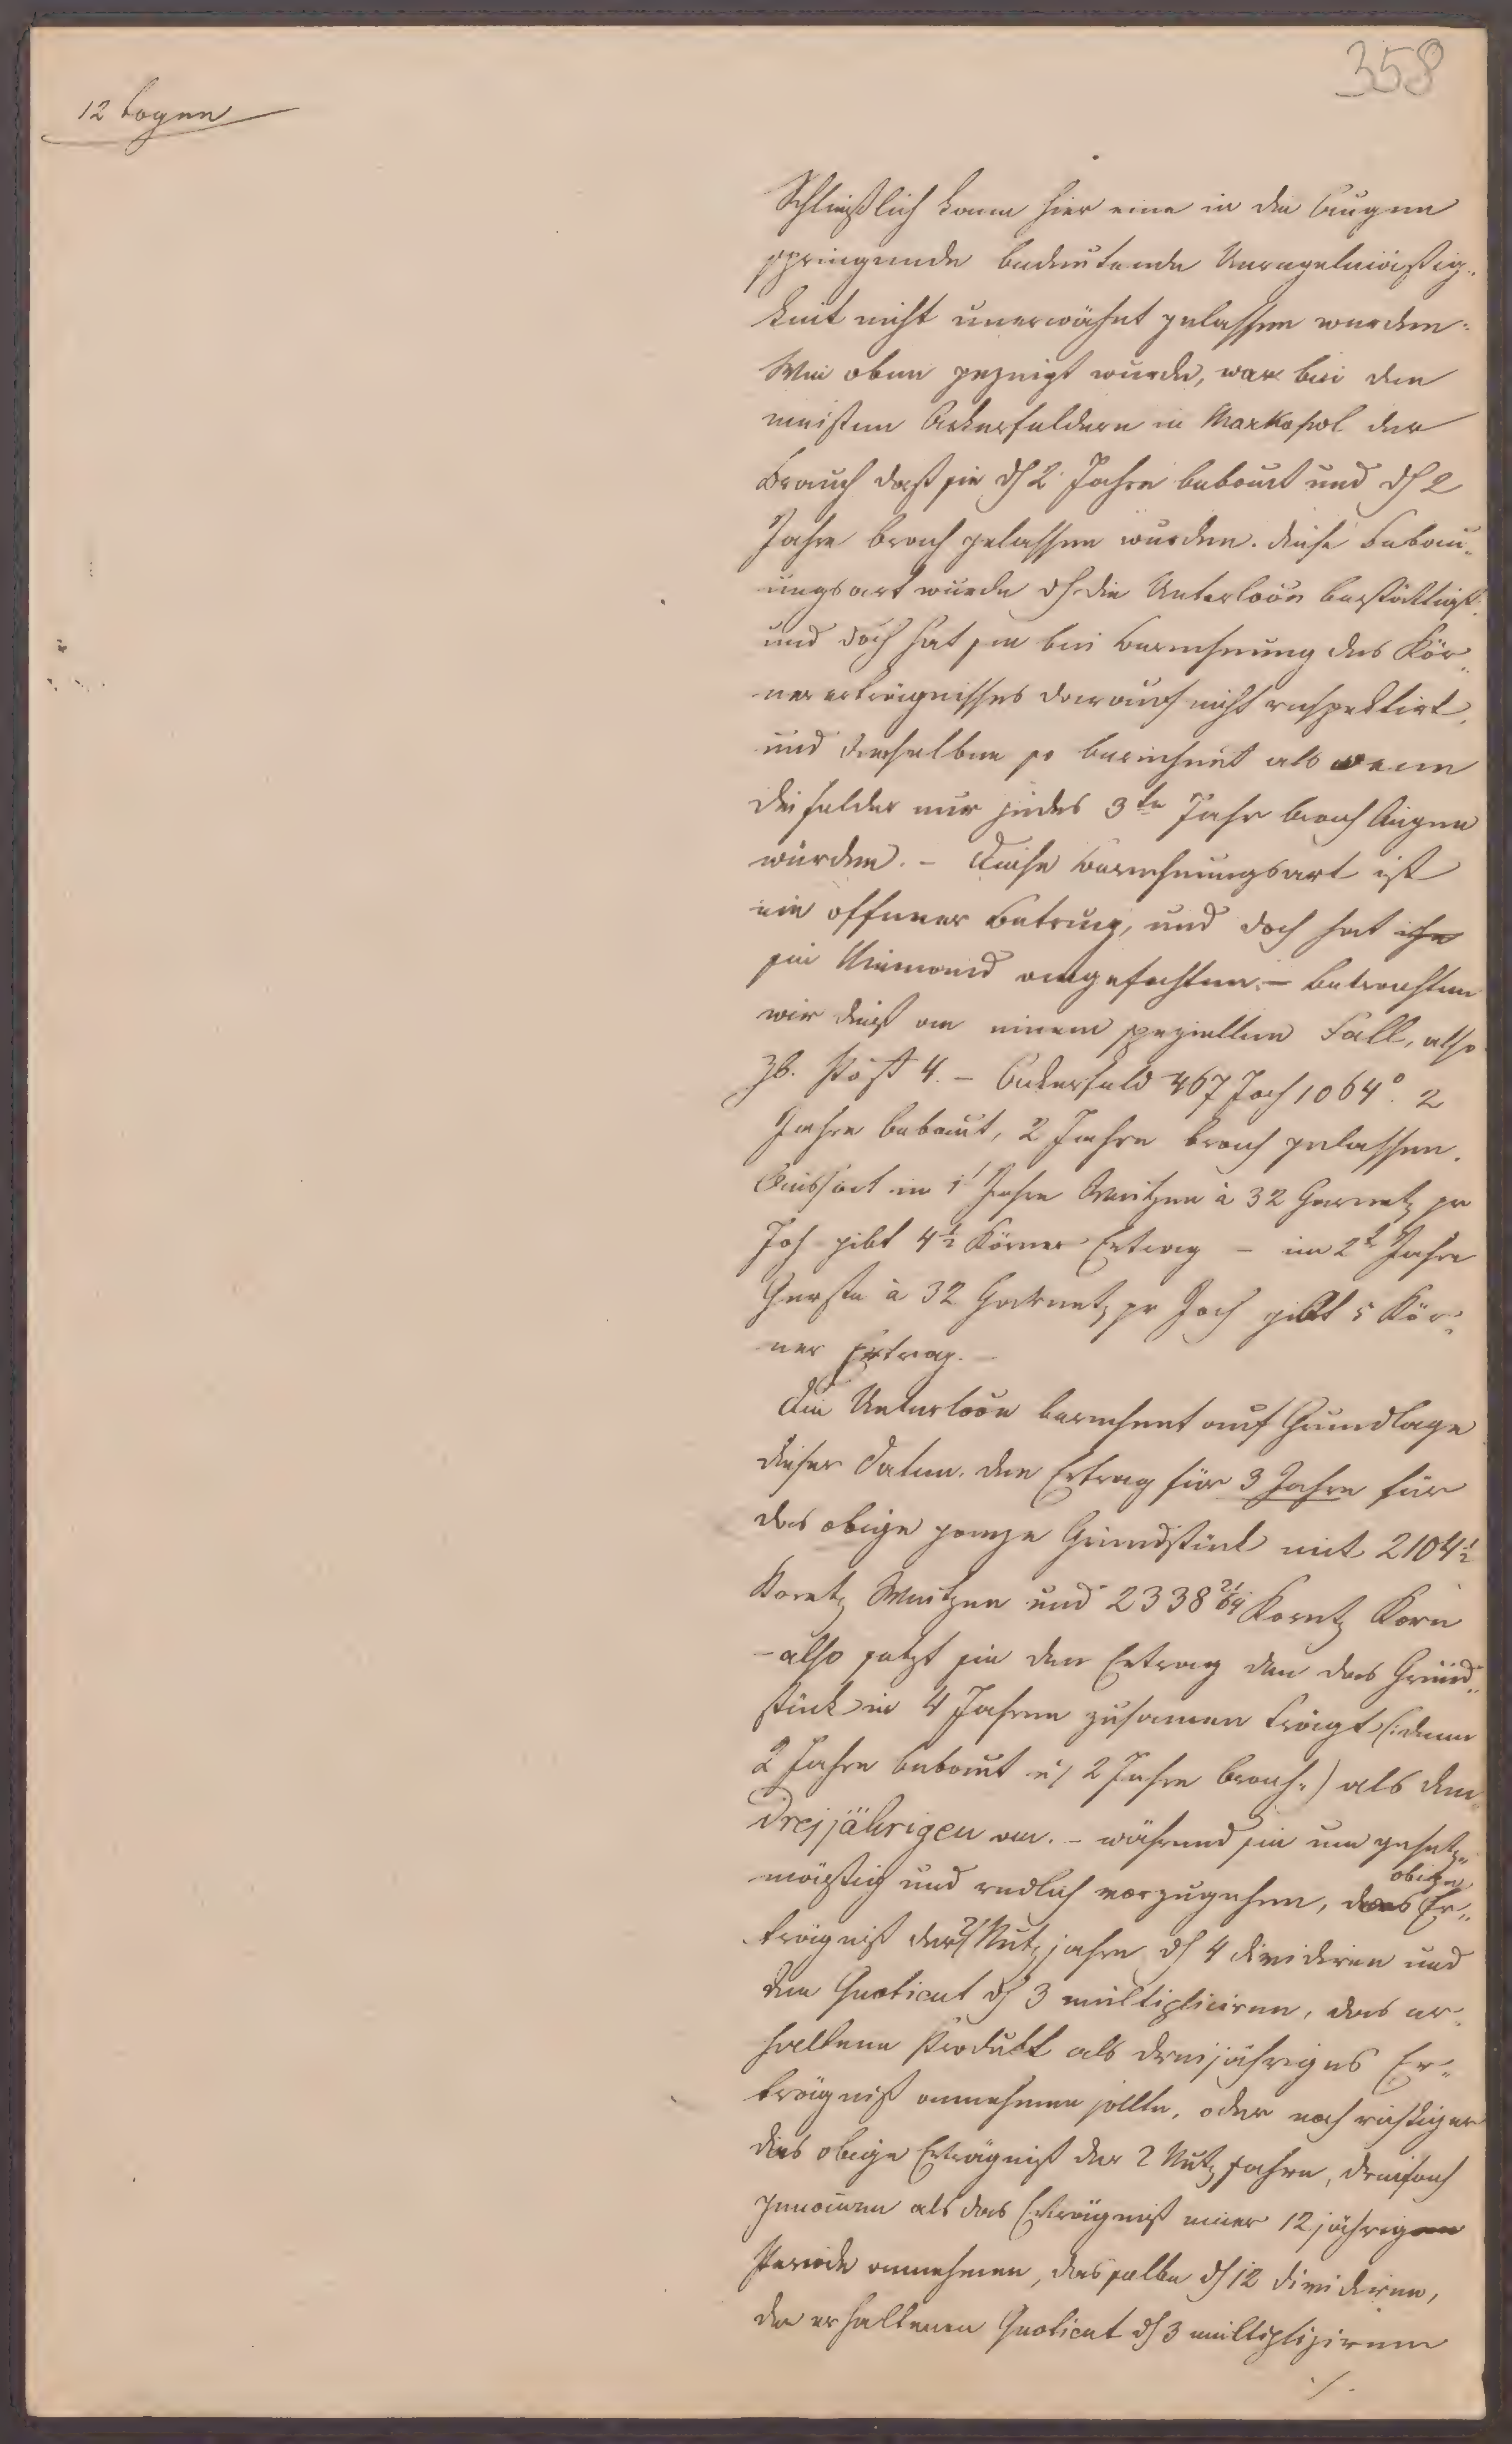 358
12 Bogen
Schließlich kann hier eine in die Augen
springende bedeutende Unregelmäßig-
keit nicht unerwähnt gelassen werden:
Wie oben gezeigt wurde, war bei den
meisten Ackerfeldern in Markopol der
Brauch daß sie dh 2 Jahre bebaut und dh 2
Jahre brach gelassen wurden. diese Bebau-
ungsart wurde dh die Unterloon bestättigt
und doch hat sie bei Berechnung des Kör-
nererträgnisses darauf nicht respektirt,
und dasselbe so berechnet als wenn
die Felder nur jedes 3te Jahr brach liegen
würden. – Diese Berechnungsart ist
ein offener Betrug, und doch hat ihn
sie Niemand angefochten. – Betrachten
wir dieß an einem speziellen Fall, also
zb. Post 4. – Ackerfeld 467 Joch 1064°. 2
Jahre bebaut, 2 Jahre brach gelassen.
Aussaat im 1t Jahre Weitzen à 32 Garnetz pr
Joch gibt 4½ Körner Ertrag – im 2t Jahre
Gerste à 32 Garnetz pr Joch gibt 5 Kör-
ner Ertrag. –
Die Unterloon berechnet auf Grundlage
dieser Daten den Ertrag für 3 Jahre für
das obige ganze Grundstück mit 2104½
Koretz Weitzen und 2338 21/64 Koretz Korn
– also setzt sie den Ertrag den das Grund-
stück in 4 Jahren zusamen trägt (: denn
2 Jahre bebaut u/ 2 Jahre brach :) als den
dreijährigen an. – während sie um gesetz-
mäßig und redlich vorzugehen, das obige Er-
trägniß der 2/ Nutzjahre dh 4 dividiren und
den Quotient dh 3 multipliciren, das er-
haltene Produkt als dreijähriges Er-
trägniß annehmen sollte, oder noch richtiger
das obige Erträgniß der 2 Nutzjahre, dreifach
genomen als das Erträgniß einer 12jährigen
Periode annehmen, dasselbe dh 12 dividiren,
den erhaltenen Quotient dh 3 multipliziren
./.